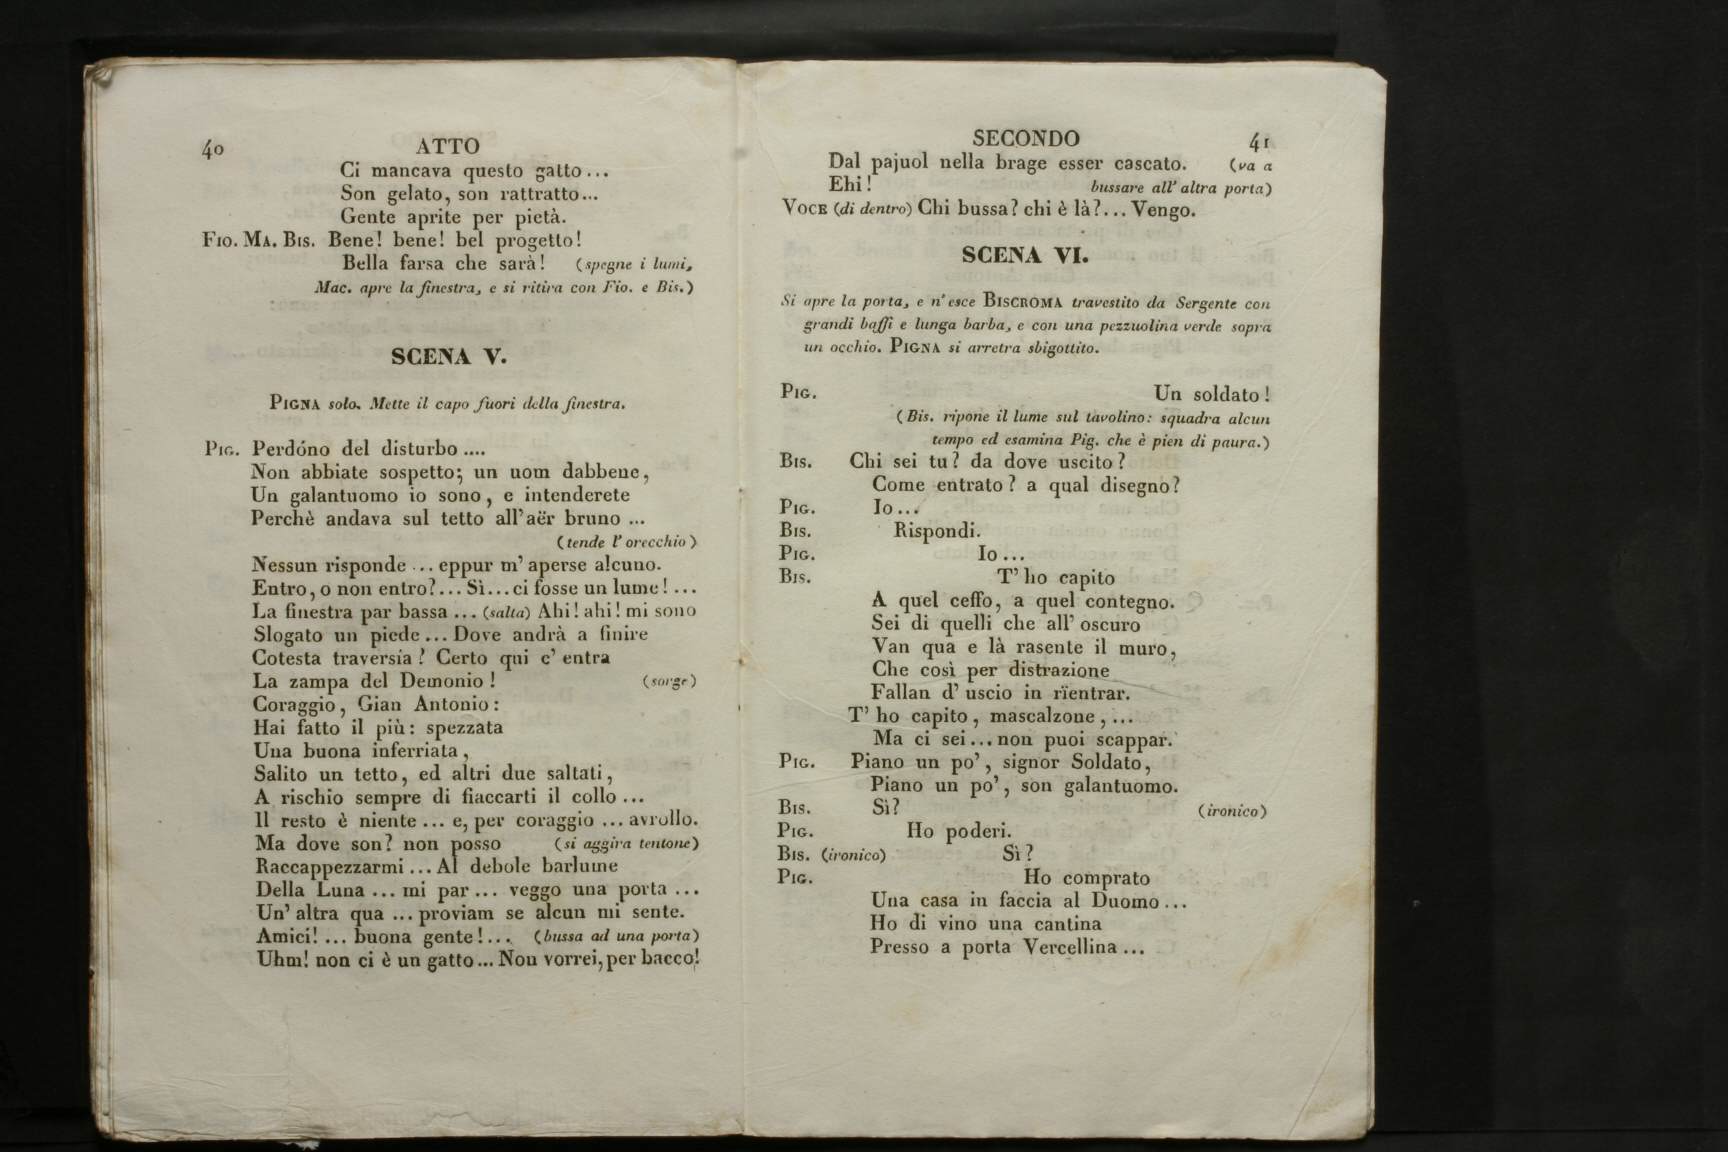 40 ATTO
Ci mancava questo gatto...
Son gelato, son rattratto...
Gente aprite per pietà.
Fio. Ma. Bis. Bene! bene! bel progetto!
Bella farsa che sarà! (spegne i lumi,
Mac. apre la finestra, e si ritira con Fio. e Bis.)
SCENA V.
Pigna solo. Mette il capo fuori della finestra.
Pig. Perdóno del disturbo ....
Non abbiate sospetto; un uom dabbene,
Un galantuomo io sono, e intenderete
Perchè andava sul tetto all'aër bruno ...
(tende l'orecchio)
Nessun risponde ... eppur m'aperse alcuno.
Entro, o non entro?... Sì... ci fosse un lume!...
La finestra par bassa ... (salta) Ahi! ahi! mi sono
Slogato un piede ... Dove andrà a finire
Cotesta traversía? Certo qui c'entra
La zampa del Demonio! (sorge)
Coraggio, Gian Antonio:
Hai fatto il più: spezzata
Una buona inferriata,
Salito un tetto, ed altri due saltati,
A rischio sempre di fiaccarti il collo ...
Il resto è niente ... e, per coraggio ... avrollo.
Ma dove son? non posso (si aggira tentone)
Raccappezzarmi ... Al debole barlume
Della Luna ... mi par ... veggo una porta ...
Un'altra qua ... proviam se alcun mi sente.
Amici!... buona gente!... (bussa ad una porta)
Uhm! non ci è un gatto... Non vorrei, per bacco!
SECONDO 41
Dal pajuol nella brage esser cascato. (va a
Ehi! bussare all'altra porta)
Voce (di dentro) Chi bussa? chi è là?... Vengo.
SCENA VI.
Si apre la porta, e n'esce Biscroma travestito da Sergente con
grandi baffi e lunga barba, e con una pezzuolina verde sopra
un occhio. Pigna si arretra sbigottito.
Pig. Un soldato!
(Bis. ripone il lume sul tavolino: squadra alcun
tempo ed esamina Pig. che è pien di paura.)
Bis. Chi sei tu? da dove uscito?
Come entrato? a qual disegno?
Pig. Io...
Bis. Rispondi.
Pig. Io...
Bis. T'ho capito
A quel ceffo, a quel contegno.
Sei di quelli che all'oscuro
Van qua e là rasente il muro,
Che così per distrazione
Fallan d'uscio in rïentrar.
T'ho capito, mascalzone,...
Ma ci sei... non puoi scappar.
Pig. Piano un po', signor Soldato,
Piano un po', son galantuomo.
Bis. Sì? (ironico)
Pig. Ho poderi.
Bis. (ironico) Sì?
Pig. Ho comprato
Una casa in faccia al Duomo...
Ho di vino una cantina
Presso a porta Vercellina...